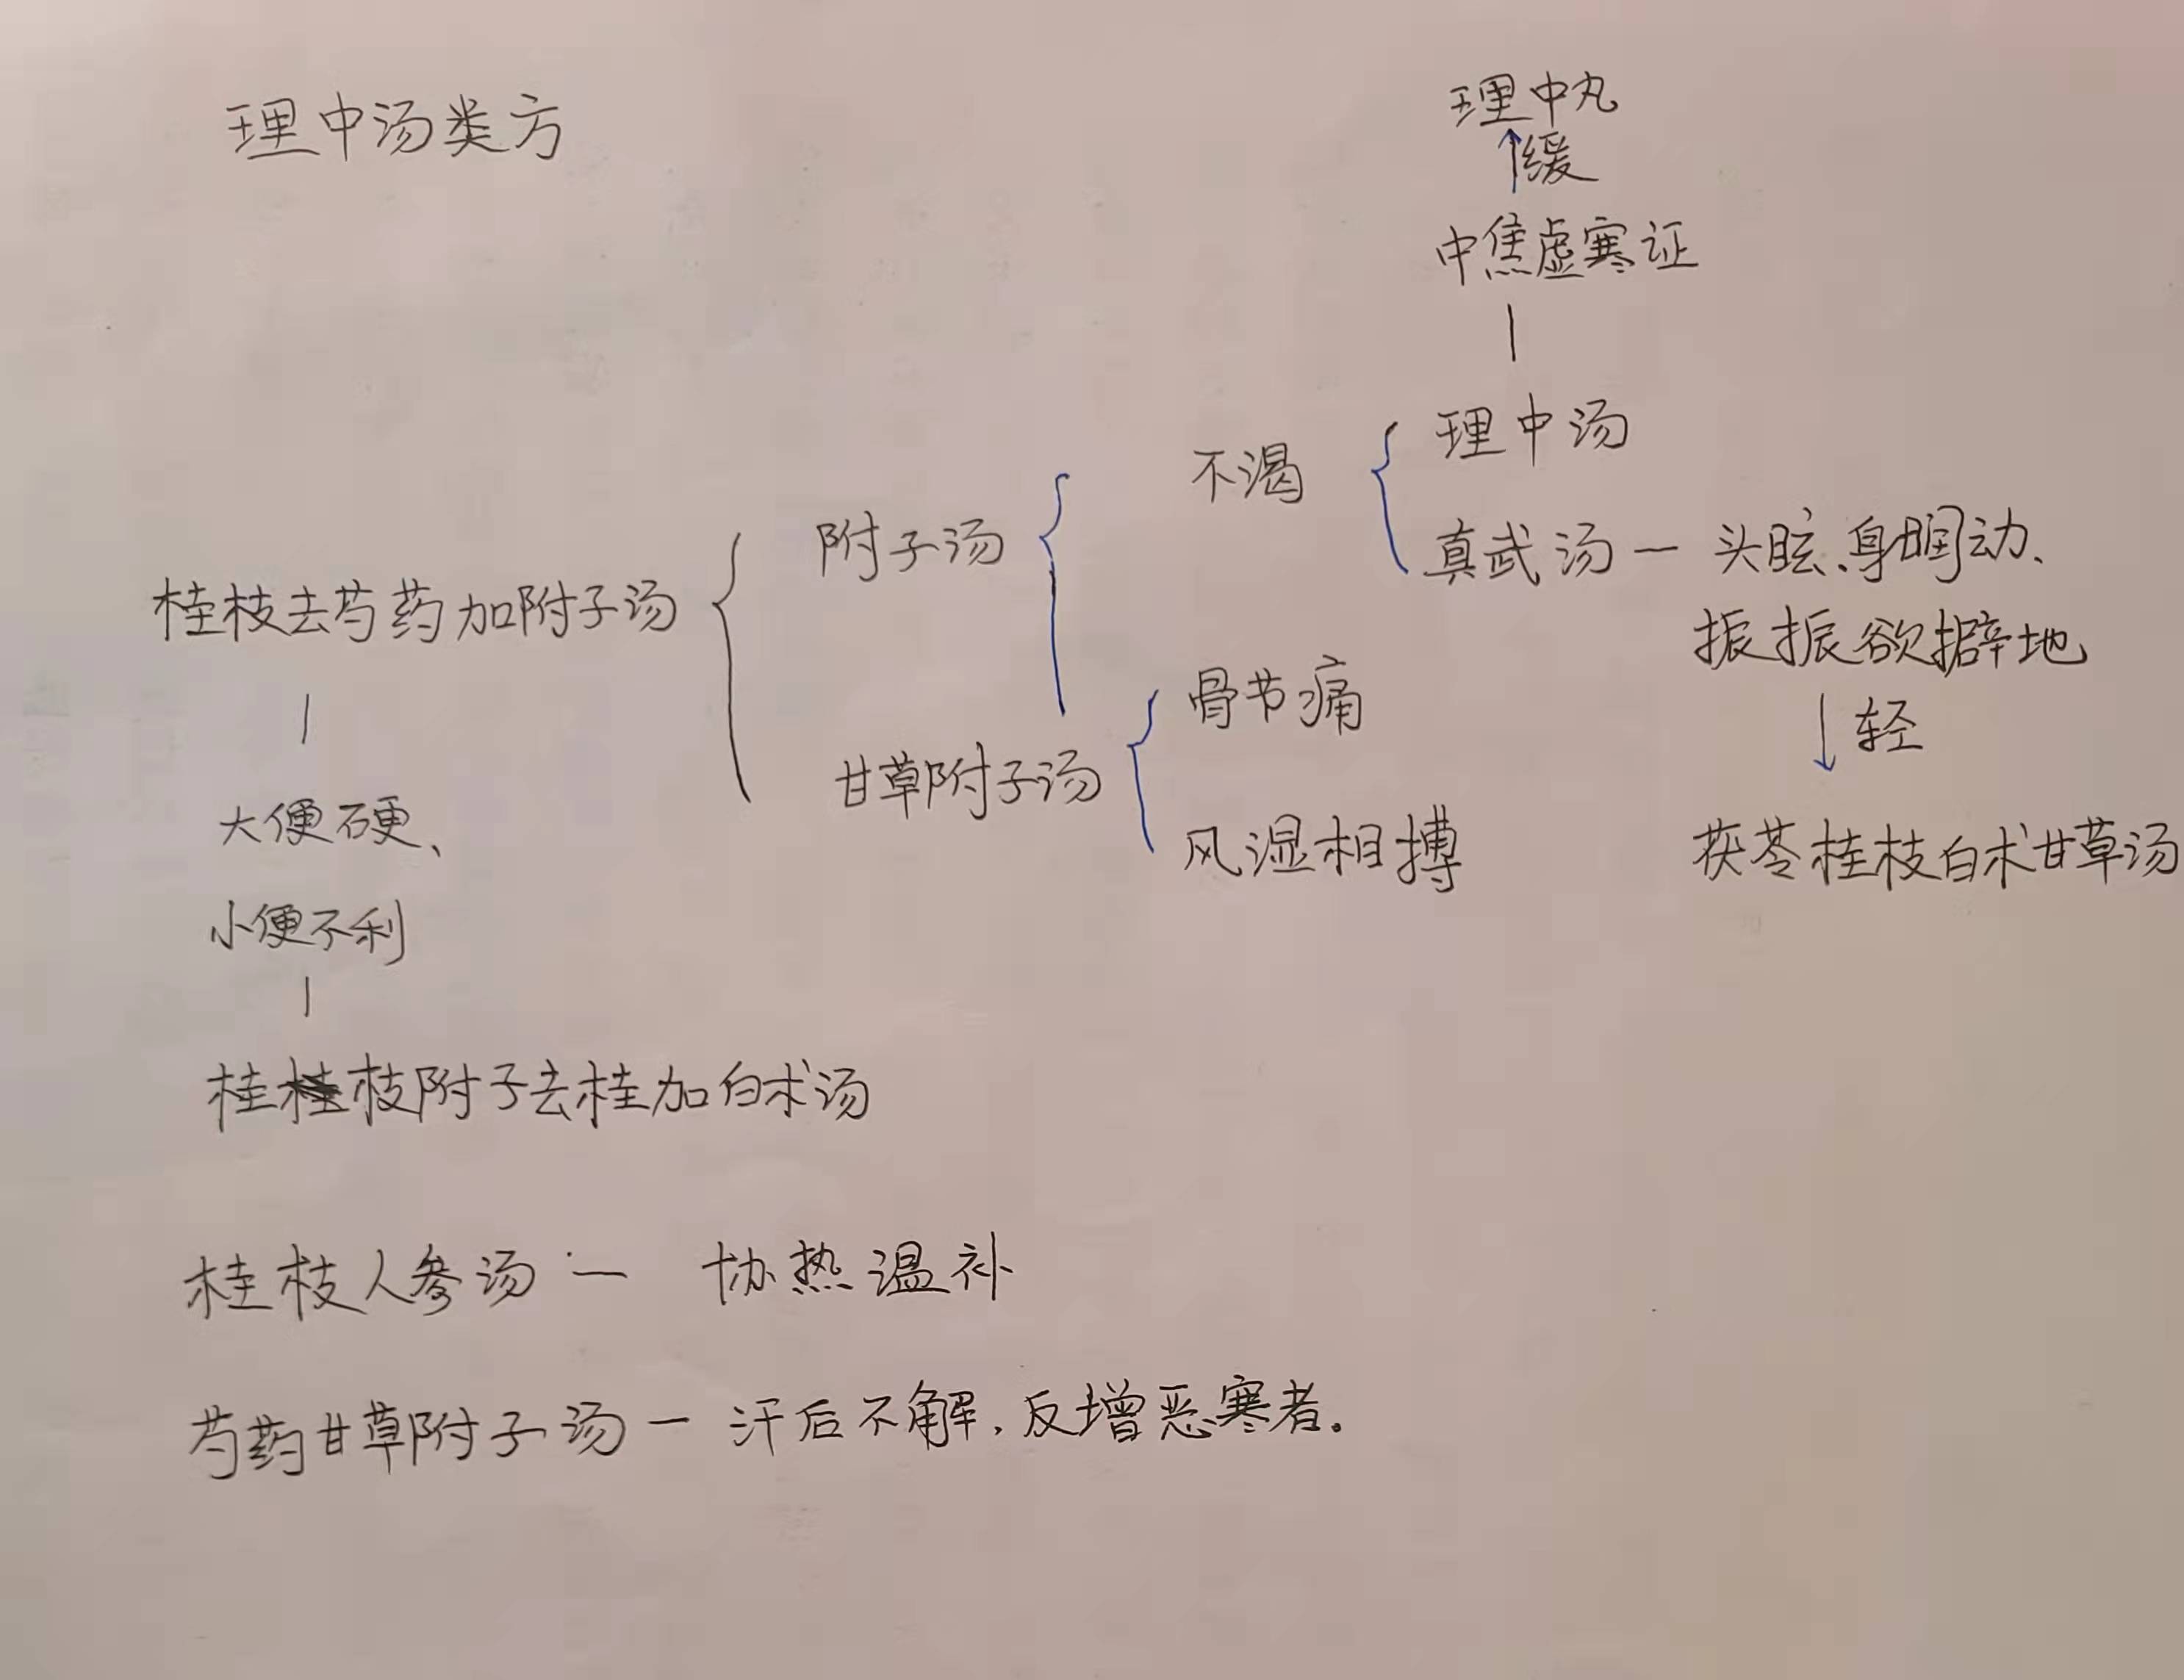 理中汤类方
理中丸
缓
中焦虚寒证
理中汤
不渴
真武汤一头眩、身瞤动、
振振欲擗地
轻
茯苓桂枝白术甘草汤
附子汤
桂枝去芍药加附子汤
骨节痛
甘草附子汤
风湿相搏
大便硬、
小便不利
桂枝附子去桂加白术汤
桂枝人参汤一 协热温补
芍药甘草附子汤一汗后不解,反增恶寒者。